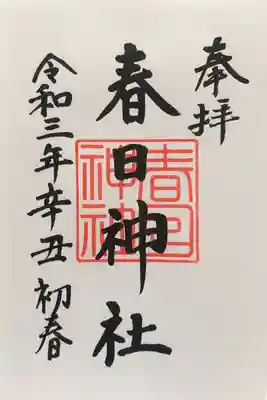 奉拝
春日神社
春日
神社
令和三年辛丑初春